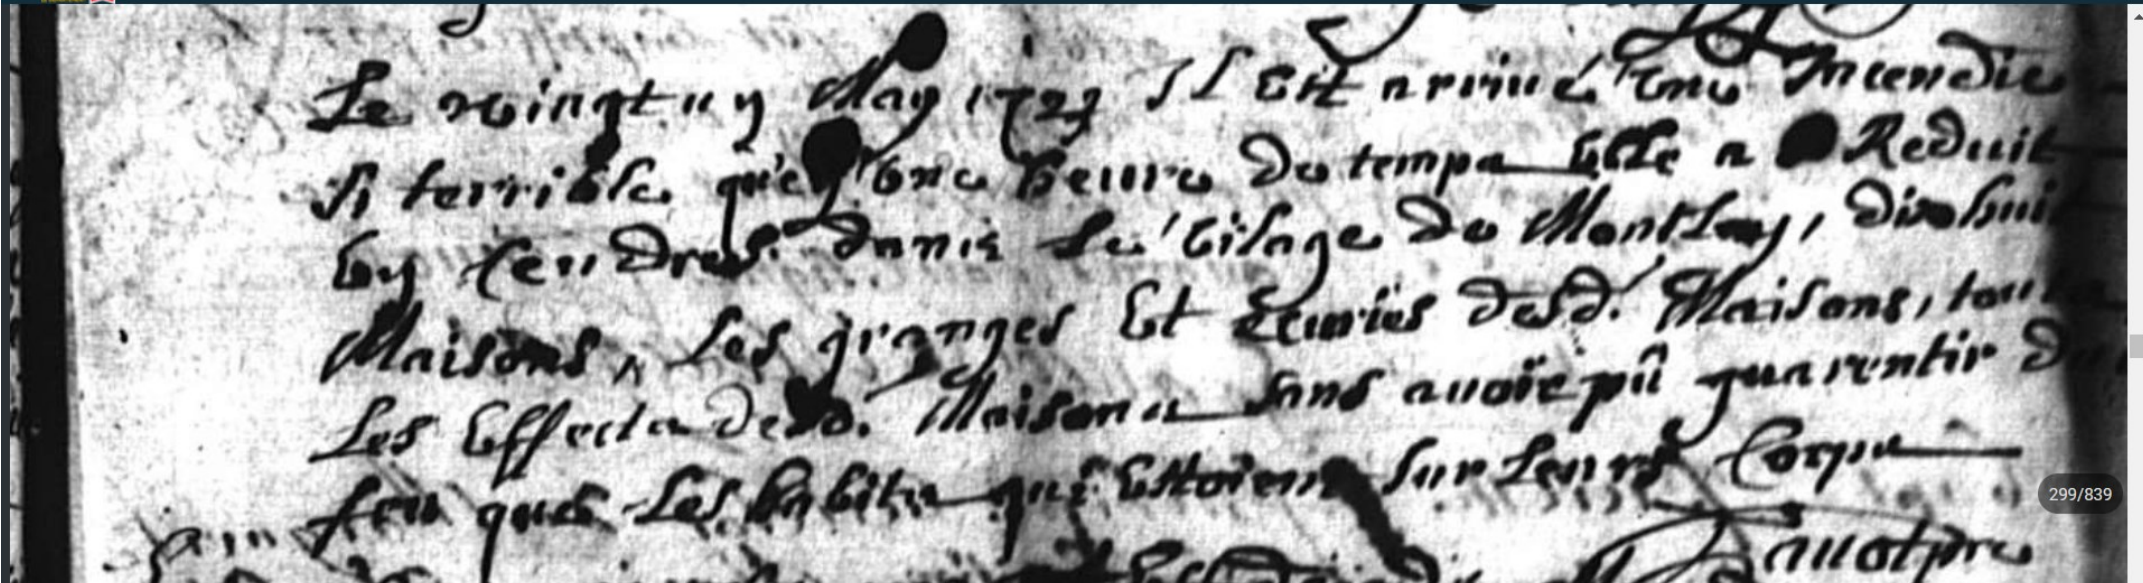 Le vingt un May 1727 Il Est arriué vne Incendie
si terrible qu'en vne heure de temps Elle a Reduit
En Cendres dans Le vilage de Montlay, dixhuit
Maisons, Les granges Et Ecuries desd. Maisons, toutes
Les Effects desd. Maisons sans auoir pû guarentir du
feu que Les habits qui Estoient sur Leurs Corps
299/839